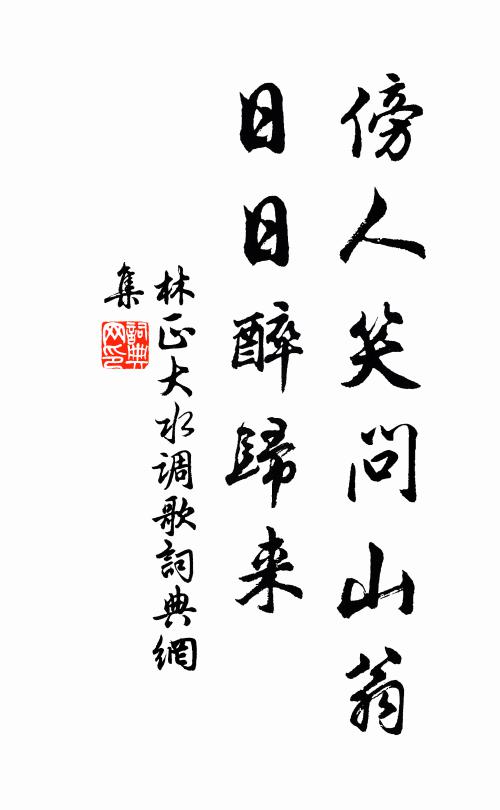 傍人笑问山翁
日日醉歸来
林正大水调歌詞典網
集
詞典网印